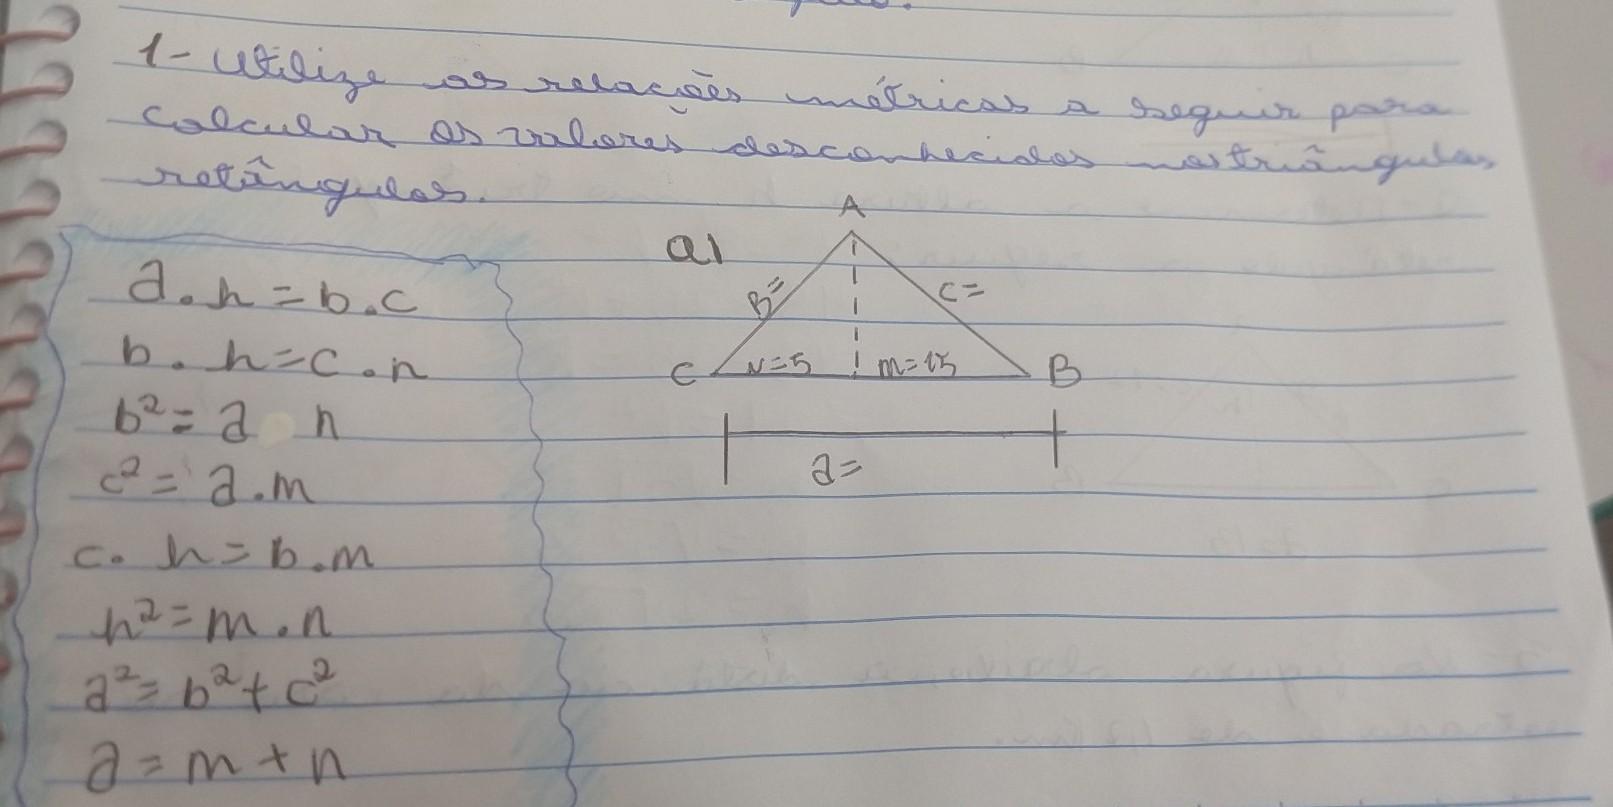 1- Utilize as relações métricas a seguir para
calcular os valores desconhecidos nos triângulos
retângulos.
a)
A
B=
C=
C
N=5
m=15
B
a=
a.h=b.c
b.h=c.n
b²=a n
c²=a.m
c.h=b.m
h²=m.n
a²=b²+c²
a=m+n